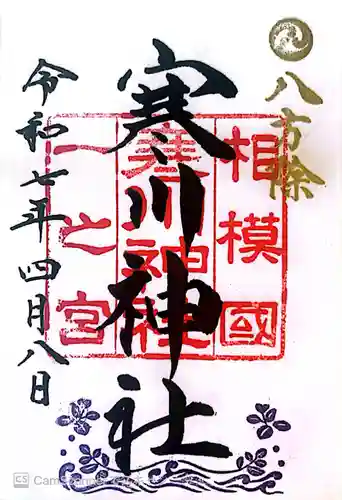 八方除
相模國
寒川神社
寒川神社
一之宮
令和七年四月八日
CS CamScanner